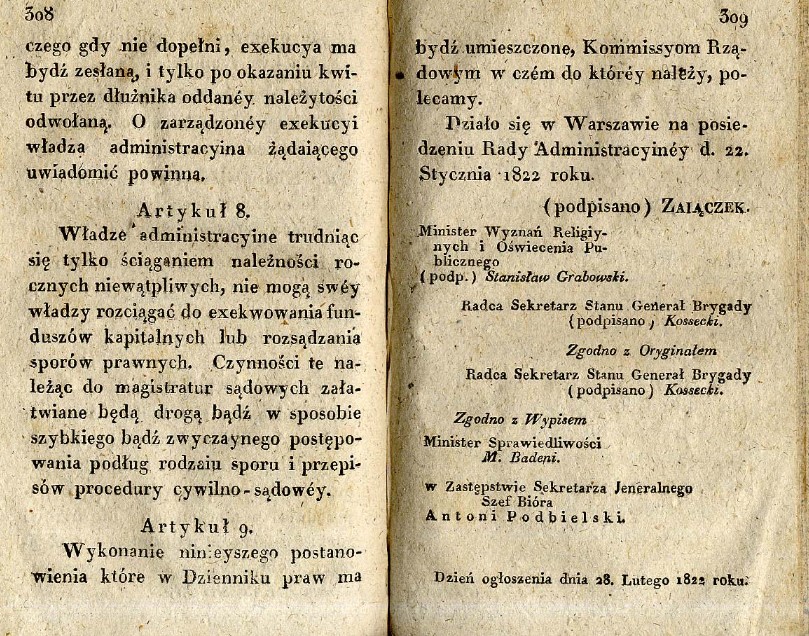 308
czego gdy nie dopełni, exekucya ma
bydź zesłaną, i tylko po okazaniu kwi-
tu przez dłużnika oddanéy należytości
odwołaną. O zarządzonéy exekucyi
władzą administracyina żądaiącego
uwiadómić powinną.
Artykuł 8.
Władze administracyine trudniąc
się tylko ściąganiem należności ro-
cznych niewątpliwych, nie mogą swéy
władzy rozciągać do exekwowania fun-
duszów kapitalnych lub rozsądzania
sporów prawnych. Czynności te na-
leżąc do magistratur sądowych zała-
twiane będą drogą bądź w sposobie
szybkiego bądź zwyczaynego postępo-
wania podług rodzaiu sporu i przepi-
sów procedury cywilno-sądowéy.
Artykuł 9.
Wykonanie ninieyszego postano-
wienia które w Dzienniku praw ma
309
bydź umieszczone, Kommissyom Rzą-
dowym w czém do któréy należy, po-
lecamy.
Działo się w Warszawie na posie-
dzeniu Rady Administracyinéy d. 22.
Stycznia 1822 roku.
(podpisano) ZAIĄCZEK.
Minister Wyznań Religiy-
nych i Oświecenia Pu-
blicznego
(podp.) Stanisław Grabowski.
Radca Sekretarz Stanu Generał Brygady
(podpisano) Kossecki.
Zgodno z Oryginałem
Radca Sekretarz Stanu Generał Brygady
(podpisano) Kossecki.
Zgodno z Wypisem
Minister Sprawiedliwości
M. Badeni.
w Zastępstwie Sekretarza Jeneralnego
Szef Bióra
Antoni Podbielski.
Dzień ogłoszenia dnia 28. Lutego 1822 roku.